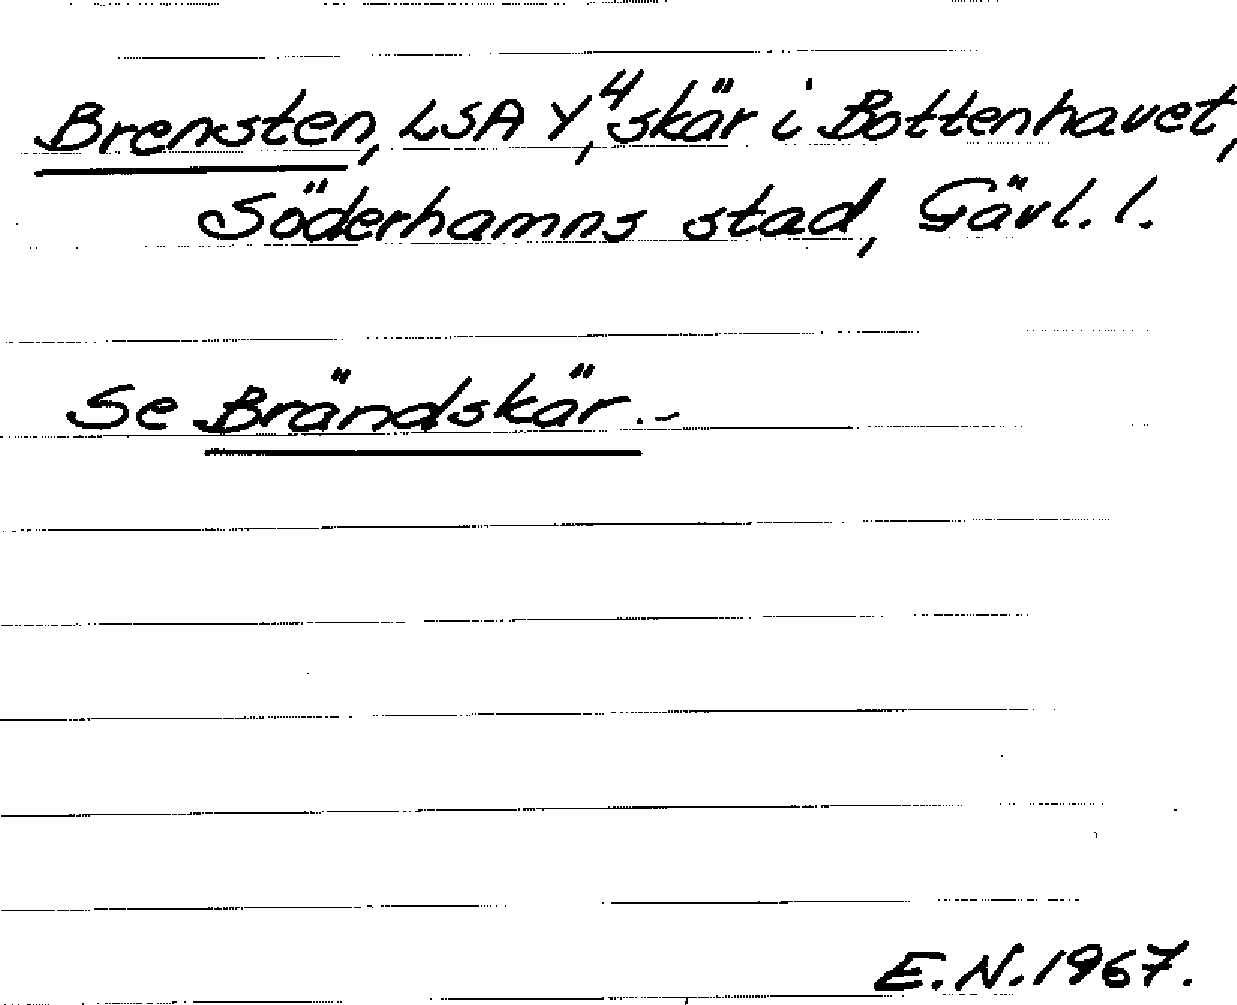 Brensten, LSA Y⁴, skär i Bottenhavet,
Söderhamns stad, Gävl. l.
Se Brändskär.-
E.N. 1967.